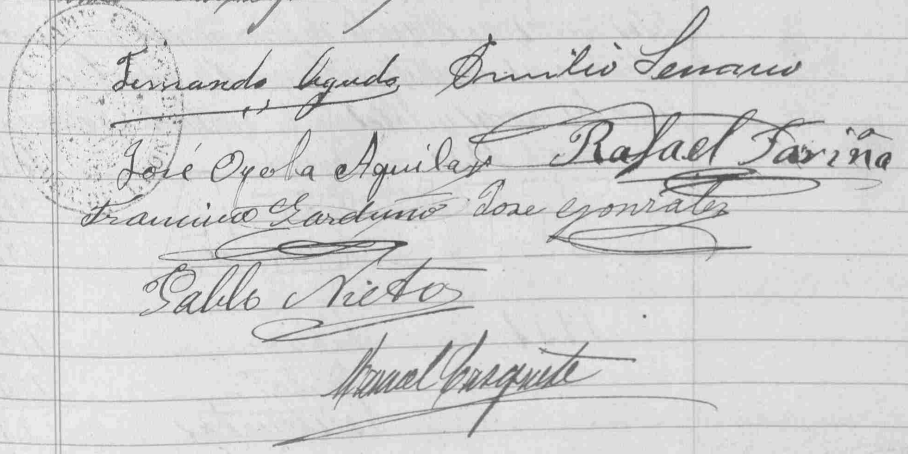 Fernando Agudo Emilio Serrano
José Oyola Aguilar Rafael Fariña
Francisco Garduño Jose Gonzalez
Pablo Nieto
Manuel Casquete